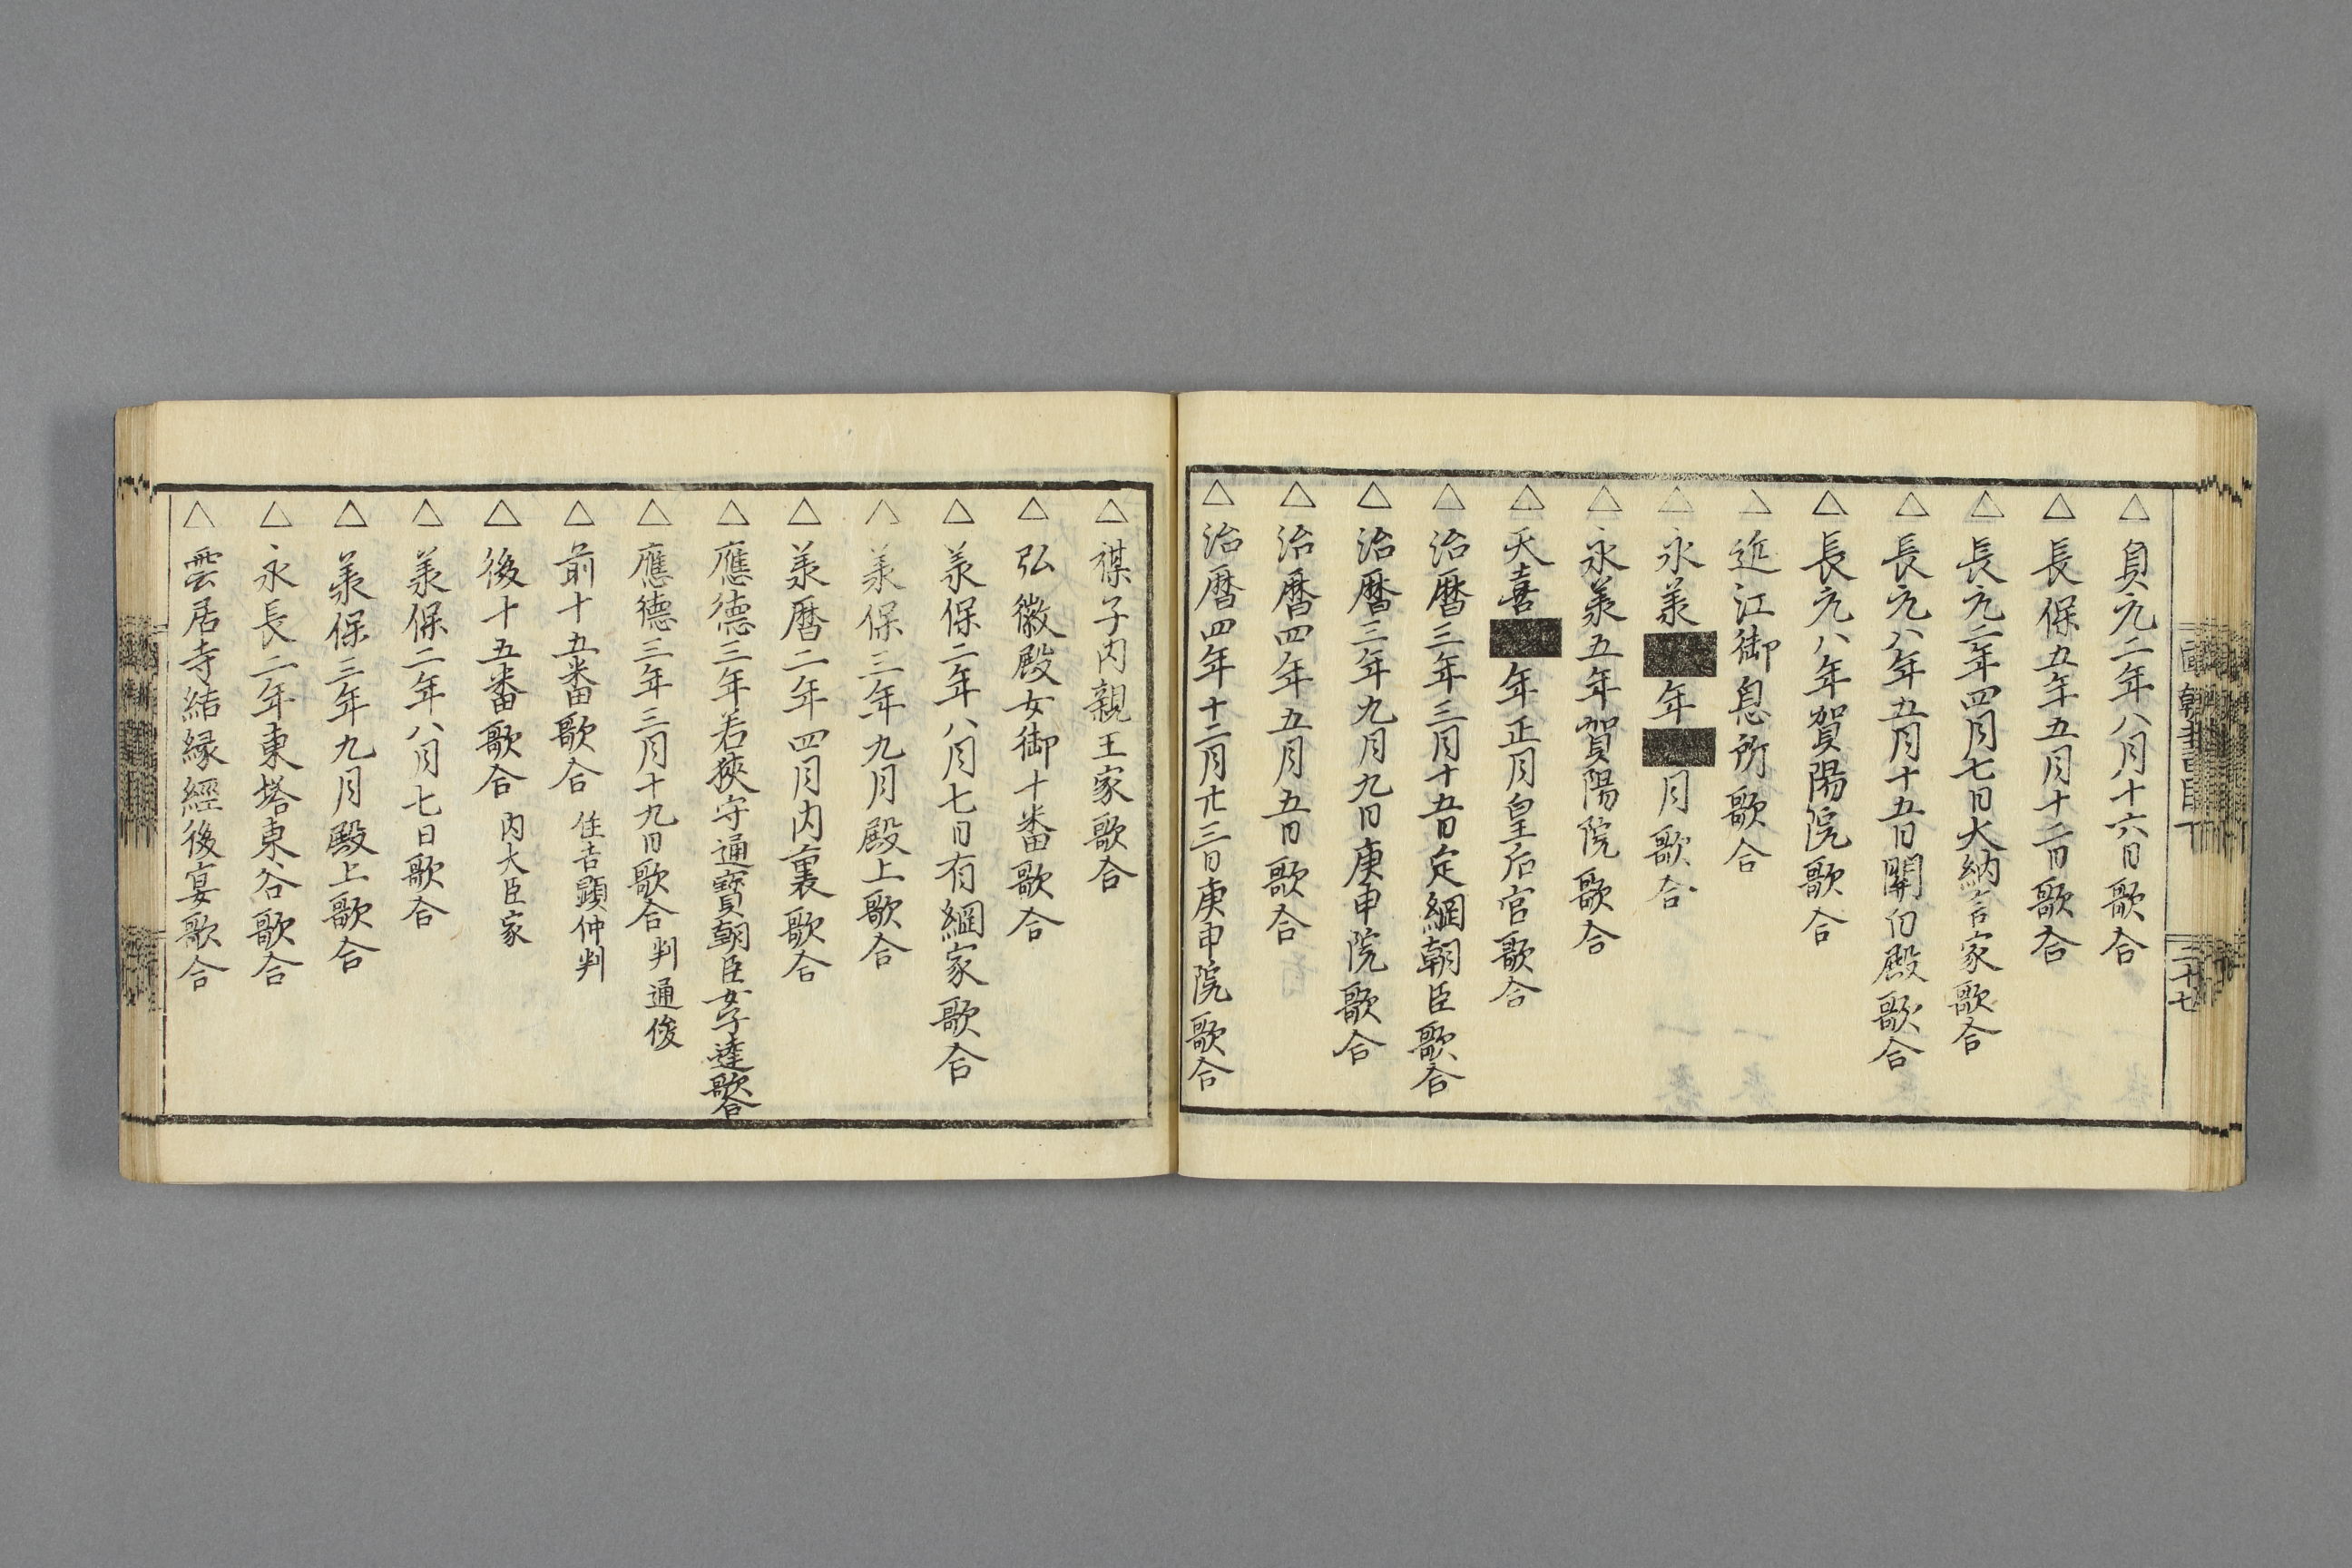 △貞元二年八月十六日歌合
△長保五年五月十二日歌合
△長元二年四月七日大納言家歌合
△長元八年五月十五日關白殿歌合
△長元八年賀陽院歌合
△近江御息所歌合
△永羕■年■月歌合
△永羕五年賀陽院歌合
△天喜■年正月皇后宮歌合
△治暦三年三月十五日定綱朝臣歌合
△治暦三年九月九日庚申院歌合
△治暦四年五月五日歌合
△治暦四年十二月廿三日庚申院歌合
三十七
△禖子内親王家歌合
△弘徽殿女御十番歌合
△羕保二年八月七日有綱家歌合
△羕保三年九月殿上歌合
△羕暦二年四月内裏歌合
△應德三年若狹守通寶朝臣女子達歌合
△應德三年三月十九日歌合 判通俊
△前十五番歌合 住吉顕仲判
△後十五番歌合 内大臣家
△羕保二年八月七日歌合
△羕保三年九月殿上歌合
△永長二年東塔東谷歌合
△雲居寺結縁經後宴歌合